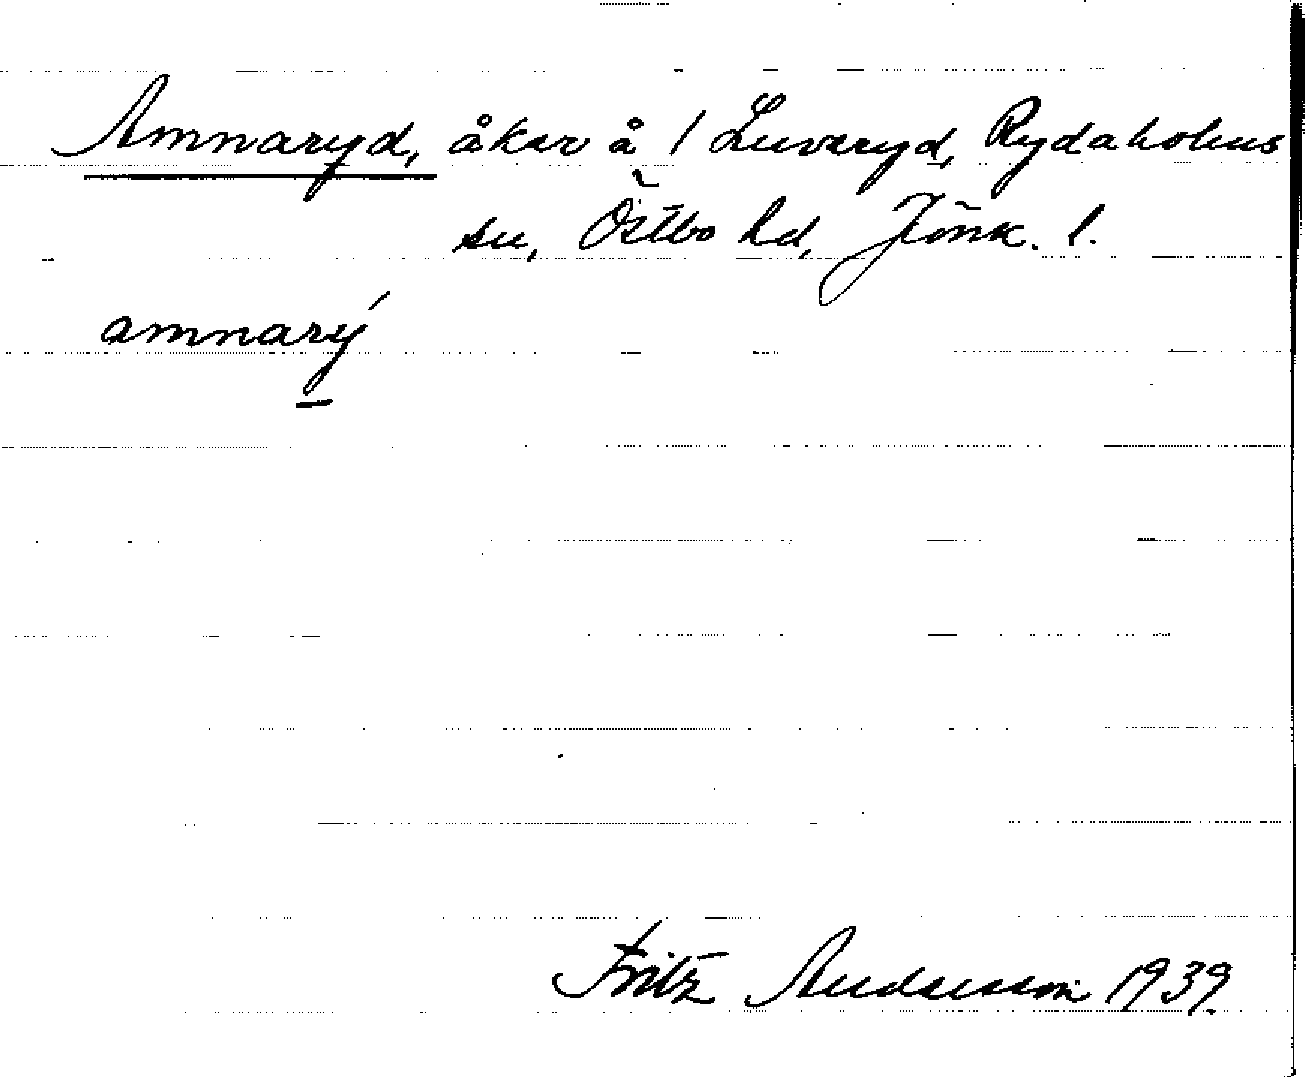 Amnaryd, åker å 1 Luveryd, Rydaholms
sn, Östbo hd, Jönk. l.
amnarý
Fritz Andersson 1939.